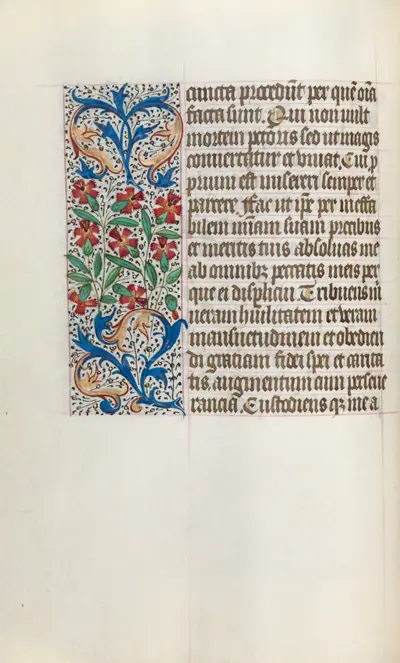 sancta procedūt per quē oīa
facta sunt. Qui non uult
mortem pctoris sed ut magis
conuertatur et viuat. Cui p
prium est misereri semper et
parcere. ffac ut ip̄e per ineffa
bilem mīam suam precibus
et meritis tuis absoluas me
ab omnibꝫ peccatis meis per
que ei displicui Tribuens m̄
ueram humilitatem et veram
mansuetudinem et obedien
di gratiam fidei spei et carita
tis augmentum cum perseue
rancia. Custodiens qꝫ me a